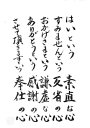 はいという 素直な心
すみませんという 反省の心
おかげさまという 謙虚な心
ありがとうという 感謝の心
させて頂きます 奉仕の心